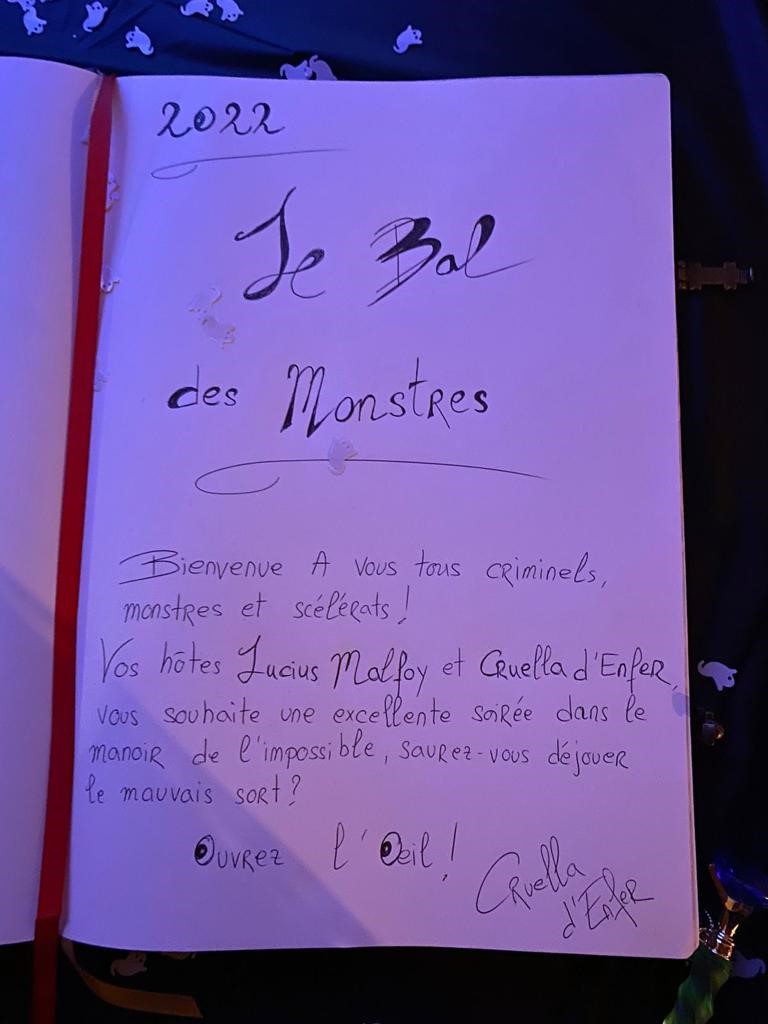 2022
Le Bal
des Monstres
Bienvenue A vous tous criminels,
monstres et scélérats !
Vos hôtes Lucius Malfoy et Cruella d'Enfer,
vous souhaite une excellente soirée dans le
manoir de l'impossible, saurez-vous déjouer
le mauvais sort ?
Ouvrez l'Oeil !
Cruella
d'Enfer